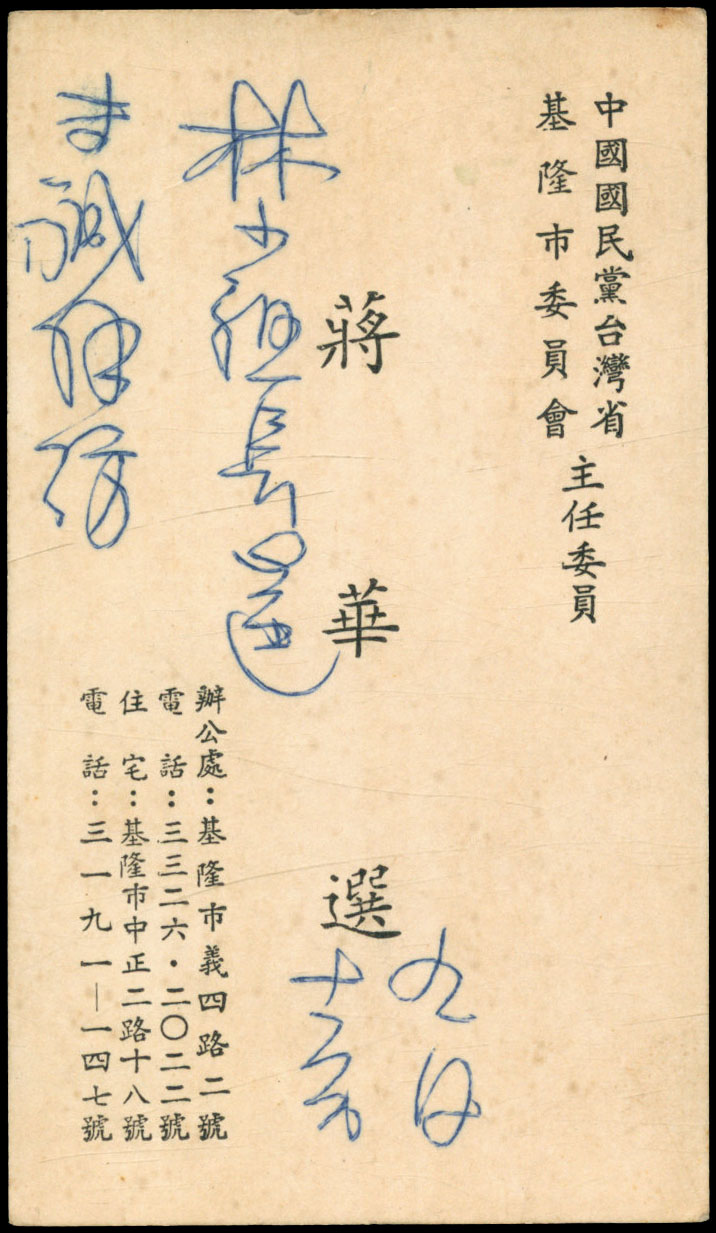 中國國民黨台灣省
基隆市委員會
主任委員
蔣華選
辦公處：基隆市義四路二號
電話：三三二六・二〇二二號
住宅：基隆市中正二路十八號
電話：三一九一—一四七號
林小組長